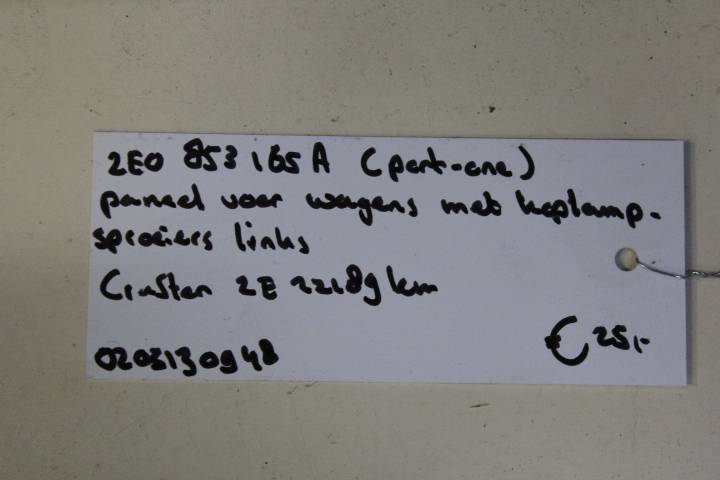 2E0 853 165 A (part-one)
paneel voor wagens met koplamp-
sproeiers links
Crafter 2E 22189 km
0203130948
€ 25,-